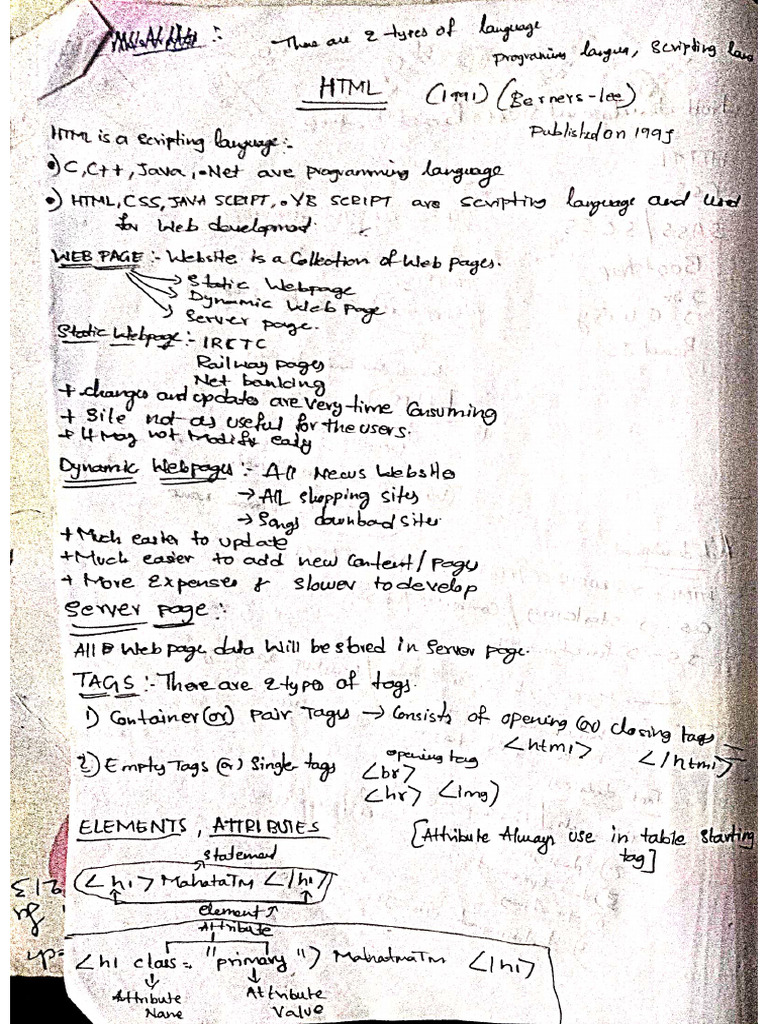 There are 2 types of language
Programing langun, Scripting lans
HTML (1991) (Berners-lee)
Published on 1995
HTML is a scripting language:-
•) C, C++, Java, .Net are programming language
•) HTML, CSS, JAVA SCRIPT, .VB SCRIPT are scripting language and used
for Web development.
WEB PAGE :- Website is a Collection of Web pages.
→ Static Webpage
→ Dynamic Web page
→ Server page.
Static Webpage :- IRCTC
Railway pages
Net banking
+ changes and updates are very time Consuming
+ Site not as useful for the users.
+ It May not Modify easy
Dynamic Webpages :- All News Website
→ All shopping sites
→ Songs download sites
+ Much easier to update
+ Much easier to add new Content / page
+ More Expenses & slower to develop
Server page :-
All Web page data Will be stored in Server page.
TAGS :- There are 2 types of tags.
1) Container (or) pair Tags → Consists of opening (or) closing tags
<html> </html>
2) Empty Tags (or) Single tags opening tag
<br>
<hr> <img>
ELEMENTS, ATTRIBUTES [Attribute Always use in table starting
tag]
statement
<h1> MahataTM </h1>
element
Attribute
<h1 class = "primary"> MahatmaTM </h1>
Attribute Attribute
Name Value